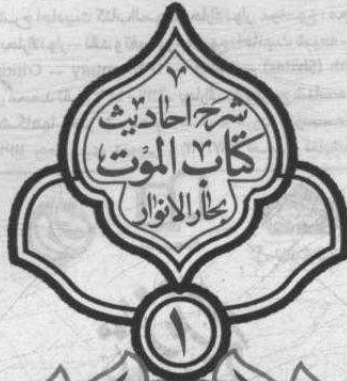 شرح احاديث
كتاب الموت
بحار الانوار
١